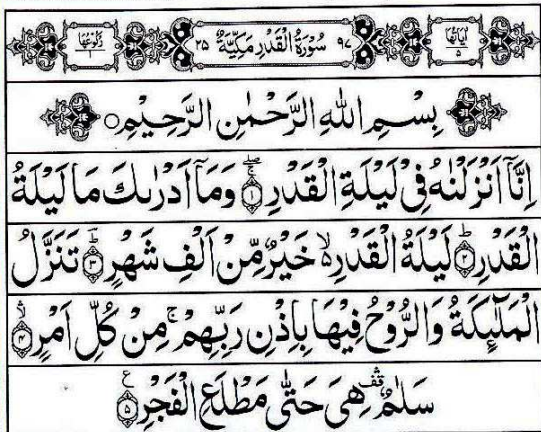 رُكُوْعُهَا ١ ٩٧ سُوْرَةُ الْقَدْرِ مَكِّيَّةٌ ٢٥ اٰيَاتُهَا ٥
بِسْمِ اللّٰهِ الرَّحْمٰنِ الرَّحِيْمِ
اِنَّاۤ اَنْزَلْنٰهُ فِيْ لَيْلَةِ الْقَدْرِ ۚۖ ۝١ وَمَاۤ اَدْرٰىكَ مَا لَيْلَةُ
الْقَدْرِ ؕ ۝٢ لَيْلَةُ الْقَدْرِ ۙ۬ خَيْرٌ مِّنْ اَلْفِ شَهْرٍ ؕ ۝٣ تَنَزَّلُ
الْمَلٰٓئِكَةُ وَالرُّوْحُ فِيْهَا بِاِذْنِ رَبِّهِمْ ۚ مِنْ كُلِّ اَمْرٍ ۙۛ ۝٤
سَلٰمٌ ۛ۫ هِيَ حَتّٰى مَطْلَعِ الْفَجْرِ ۝٥ ع